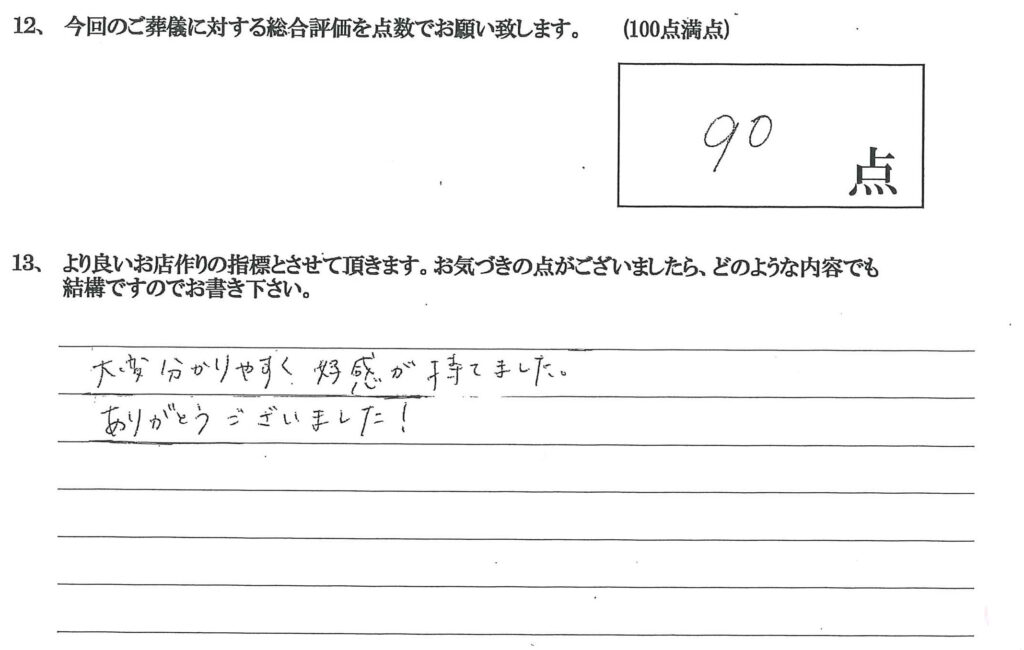 12、今回のご葬儀に対する総合評価を点数でお願い致します。 (100点満点)
90 点
13、より良いお店作りの指標とさせて頂きます。お気づきの点がございましたら、どのような内容でも
結構ですのでお書き下さい。
大変分かりやすく好感が持てました。
ありがとうございました！